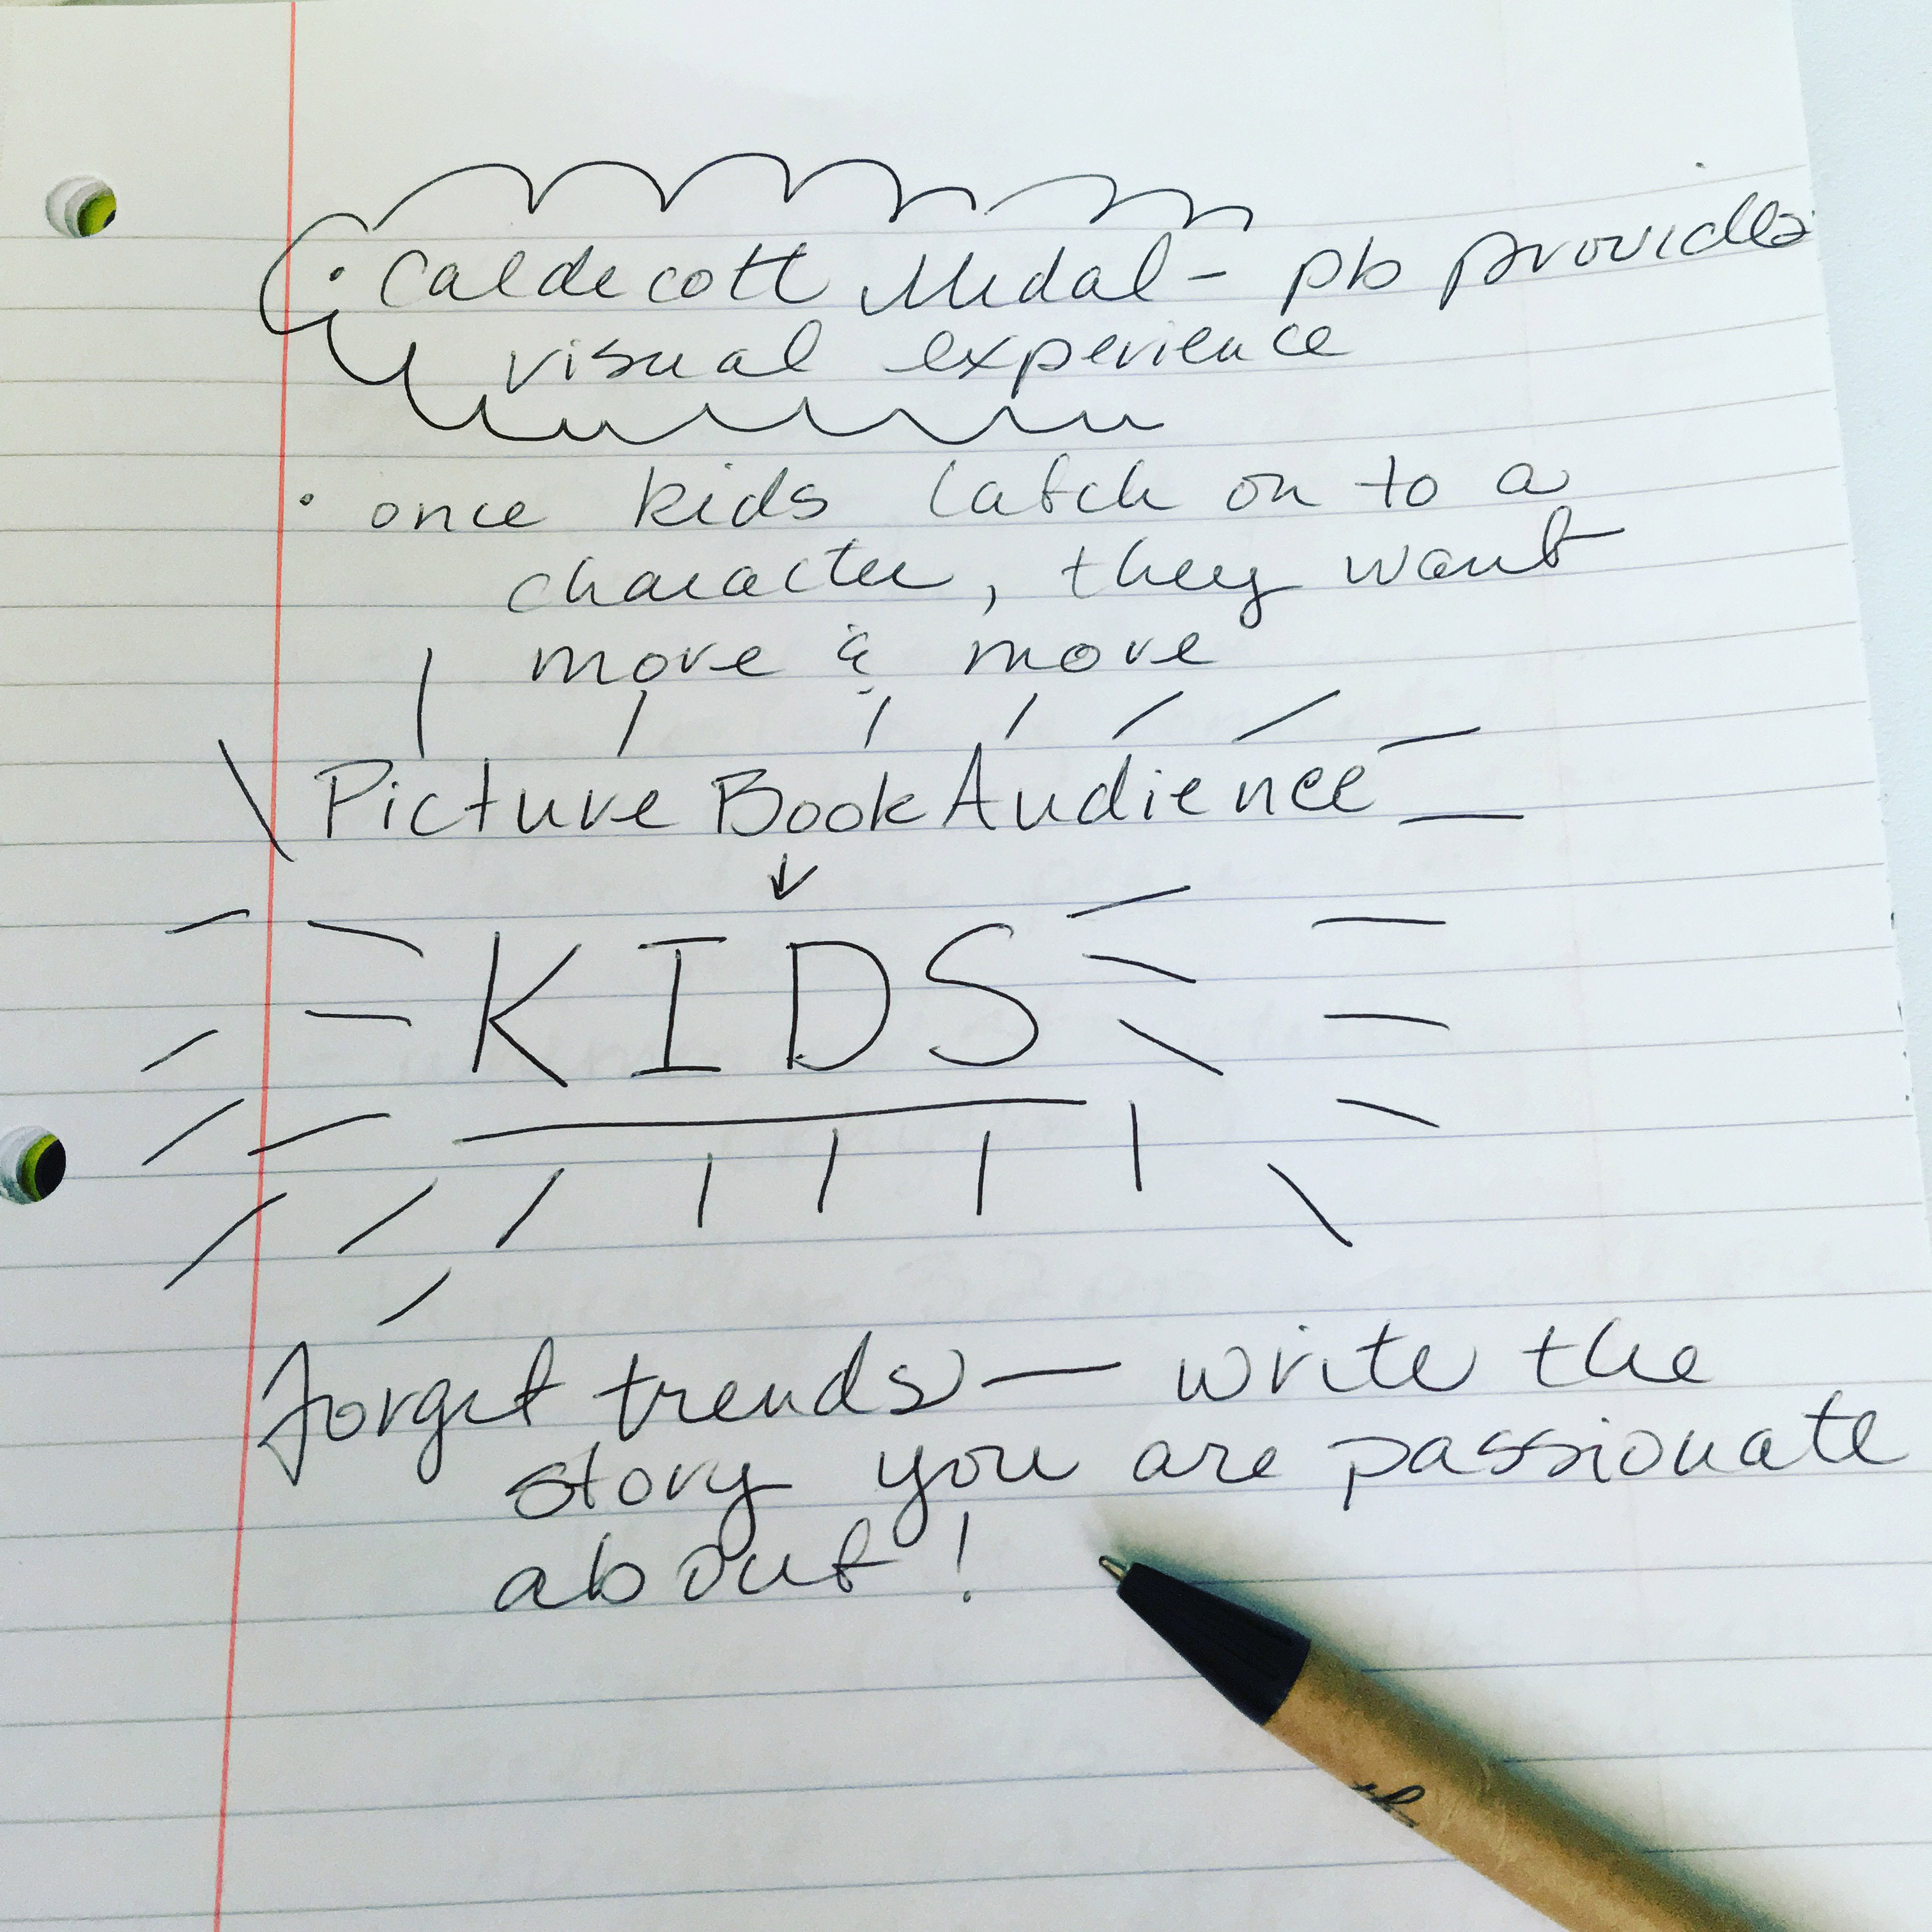 • Caldecott Medal - pb provides
visual experience
• once kids latch on to a
character, they want
more & more
Picture Book Audience
↓
KIDS
forget trends — write the
story you are passionate
about!